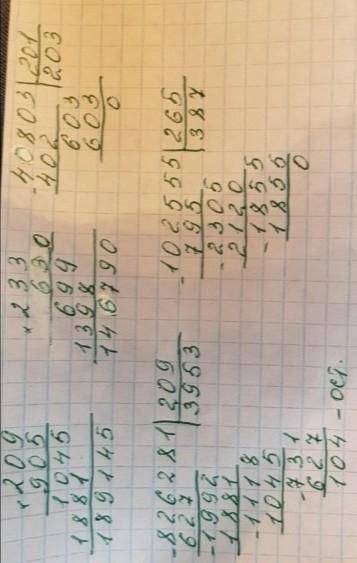 × 209
905
1045
1881
189145
× 233
630
699
1398
146790
- 40803 | 201
402 | 203
603
603
0
- 826281 | 209
627 | 3953
- 1992
1881
- 1118
1045
- 731
627
104 - ост.
- 102555 | 265
795 | 387
- 2305
2120
- 1855
- 1855
0